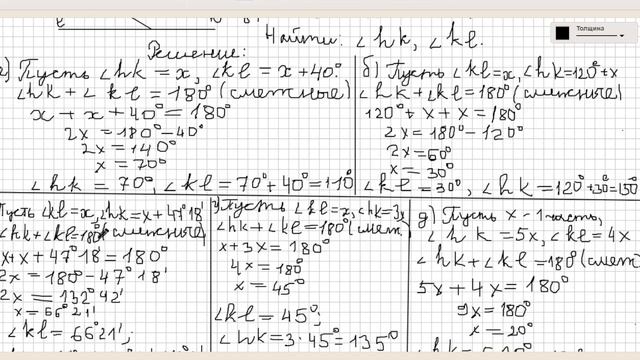 Толщина
Найти: ∠hk, ∠kl.
Решение:
а) Пусть ∠hk = x, ∠kl = x + 40°
∠hk + ∠kl = 180° (смежные)
x + x + 40° = 180°
2x = 180° - 40°
2x = 140°
x = 70°
∠hk = 70°, ∠kl = 70° + 40° = 110°
б) Пусть ∠kl = x, ∠hk = 120° + x
∠hk + ∠kl = 180° (смежные)
120° + x + x = 180°
2x = 180° - 120°
2x = 60°
x = 30°
∠kl = 30°, ∠hk = 120° + 30° = 150°
Пусть ∠kl = x, ∠hk = x + 47° 18'
∠hk + ∠kl = 180° (смежные)
x + x + 47° 18' = 180°
2x = 180° - 47° 18'
2x = 132° 42'
x = 66° 21'
∠kl = 66° 21';
г) Пусть ∠kl = x, ∠hk = 3x
∠hk + ∠kl = 180° (смеж.
x + 3x = 180°
4x = 180°
x = 45°
∠kl = 45°;
∠hk = 3 · 45° = 135°
д) Пусть x - 1 часть,
∠hk = 5x, ∠kl = 4x
∠hk + ∠kl = 180° (смеж
5x + 4x = 180°
9x = 180°
x = 20°